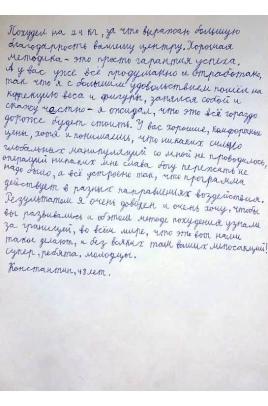 Похудел на 24 кг, за что выражаю большую
благодарность вашему центру. Хорошая
методика - это просто гарантия успеха.
А у вас уже всё продумано и отработано,
так что я с большим удовольствием пошёл на
коррекцию веса и фигуры, занялся собой и
скажу честно - я ожидал, что это всё гораздо
дороже будет стоить. У вас хорошие, комфортные
цены, хотя я понимаю, что никаких сильно
глобальных манипуляций со мной не проводилось,
операций никаких мне слава богу пережить не
надо было, а всё устроено так, что программа
действует в разных направлениях воздействия.
Результатом я очень доволен и очень хочу, чтобы
вы развивались и об этом методе похудения узнали
за границей, во всём мире, что это вот наши
такое делают, и без всяких там ваших липосакций!
Супер, ребята, молодцы.
Константин, 48 лет.